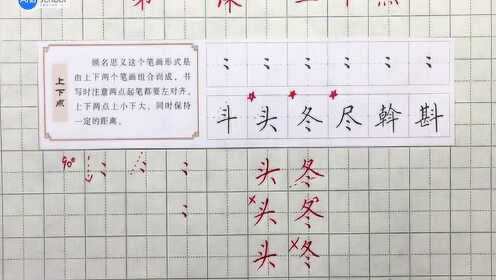 上下点
顾名思义这个笔画形式是
由上下两个笔画组合而成，书
写时注意两点起笔都要左对齐，
上下两点上小下大，同时保持
一定的距离。
斗 头 冬 尽 斡 斟
90°
头 冬
头 冬
头 冬